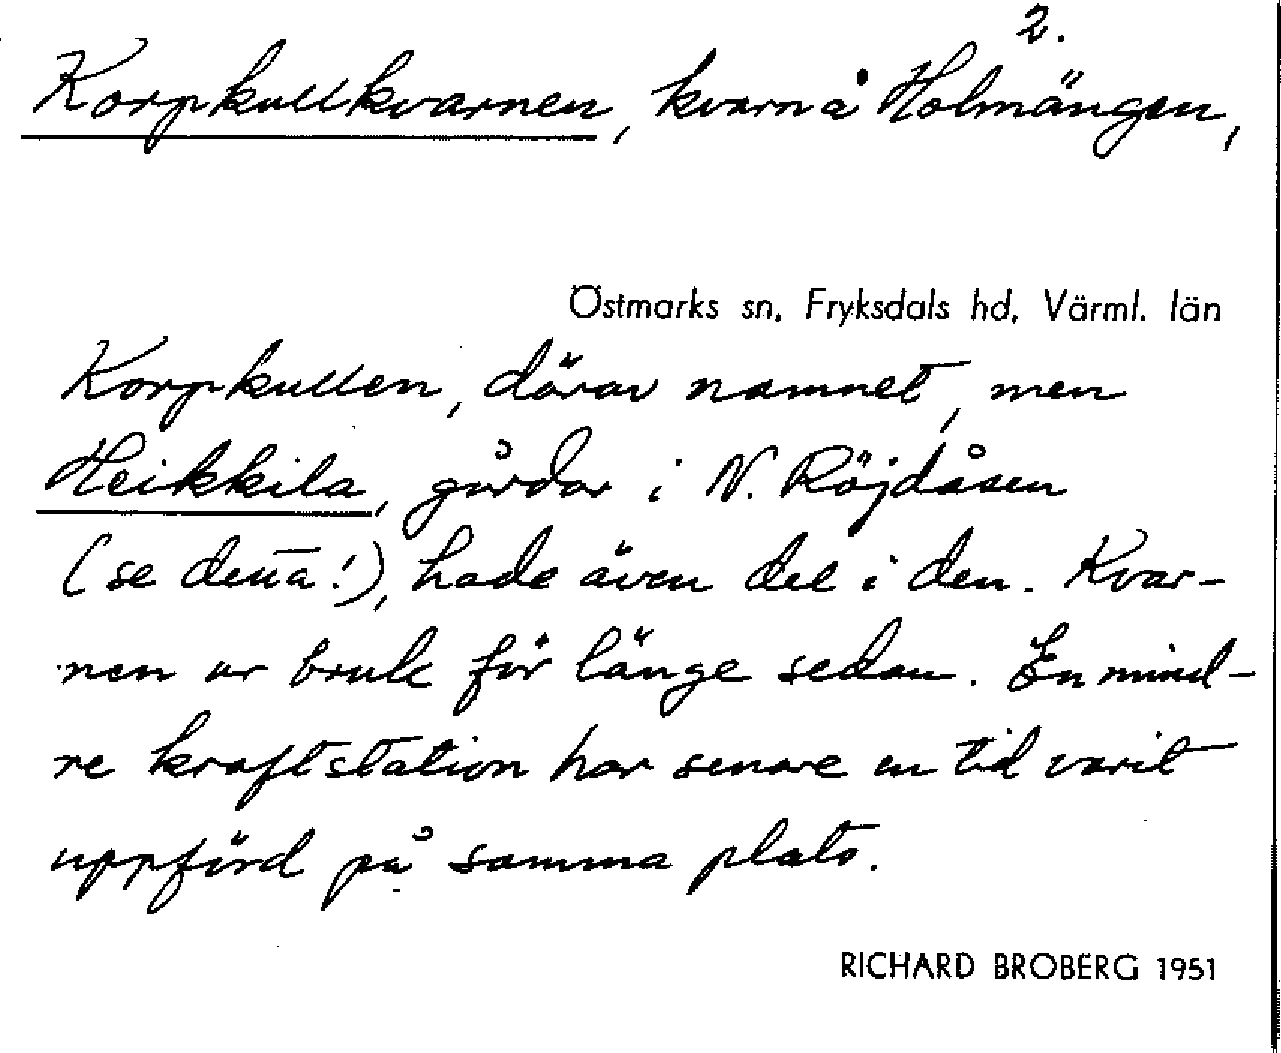 2.
Korpkullkvarnen, kvarn å Holmängen,
Östmarks sn, Fryksdals hd, Värml. län
Korpkullen, därav namnet, men
Heikkila, gårdar i N. Röjdåsen
(se detta!), hade även del i den. Kvar-
nen ur bruk för länge sedan. En mind-
re kraftstation har senare en tid varit
uppförd på samma plats.
RICHARD BROBERG 1951